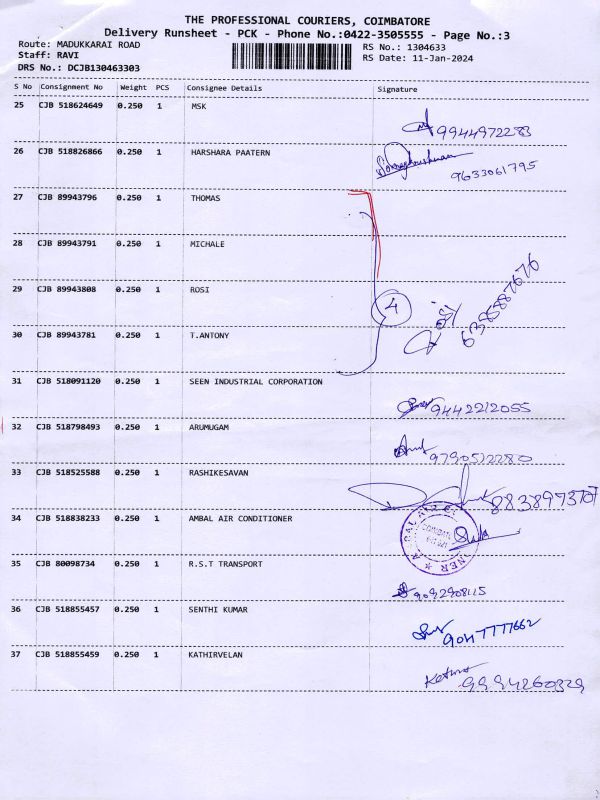 THE PROFESSIONAL COURIERS, COIMBATORE
Delivery Runsheet - PCK - Phone No.:0422-3505555 - Page No.:3
Route: MADUKKARAI ROAD RS No.: 1304633
Staff: RAVI RS Date: 11-Jan-2024
DRS No.: DCJB130463303
S No Consignment No Weight PCS Consignee Details Signature
25 CJB 518624649 0.250 1 MSK
9944972283
26 CJB 518826866 0.250 1 HARSHARA PAATERN
9633061795
27 CJB 89943796 0.250 1 THOMAS
28 CJB 89943791 0.250 1 MICHALE
29 CJB 89943808 0.250 1 ROSI
4
6385887676
30 CJB 89943781 0.250 1 T.ANTONY
31 CJB 518091120 0.250 1 SEEN INDUSTRIAL CORPORATION
9442212055
32 CJB 518798493 0.250 1 ARUMUGAM
9790512280
33 CJB 518525588 0.250 1 RASHIKESAVAN
34 CJB 518838233 0.250 1 AMBAL AIR CONDITIONER
35 CJB 80098734 0.250 1 R.S.T TRANSPORT
36 CJB 518855457 0.250 1 SENTHI KUMAR
9047777662
37 CJB 518855459 0.250 1 KATHIRVELAN
9994260329